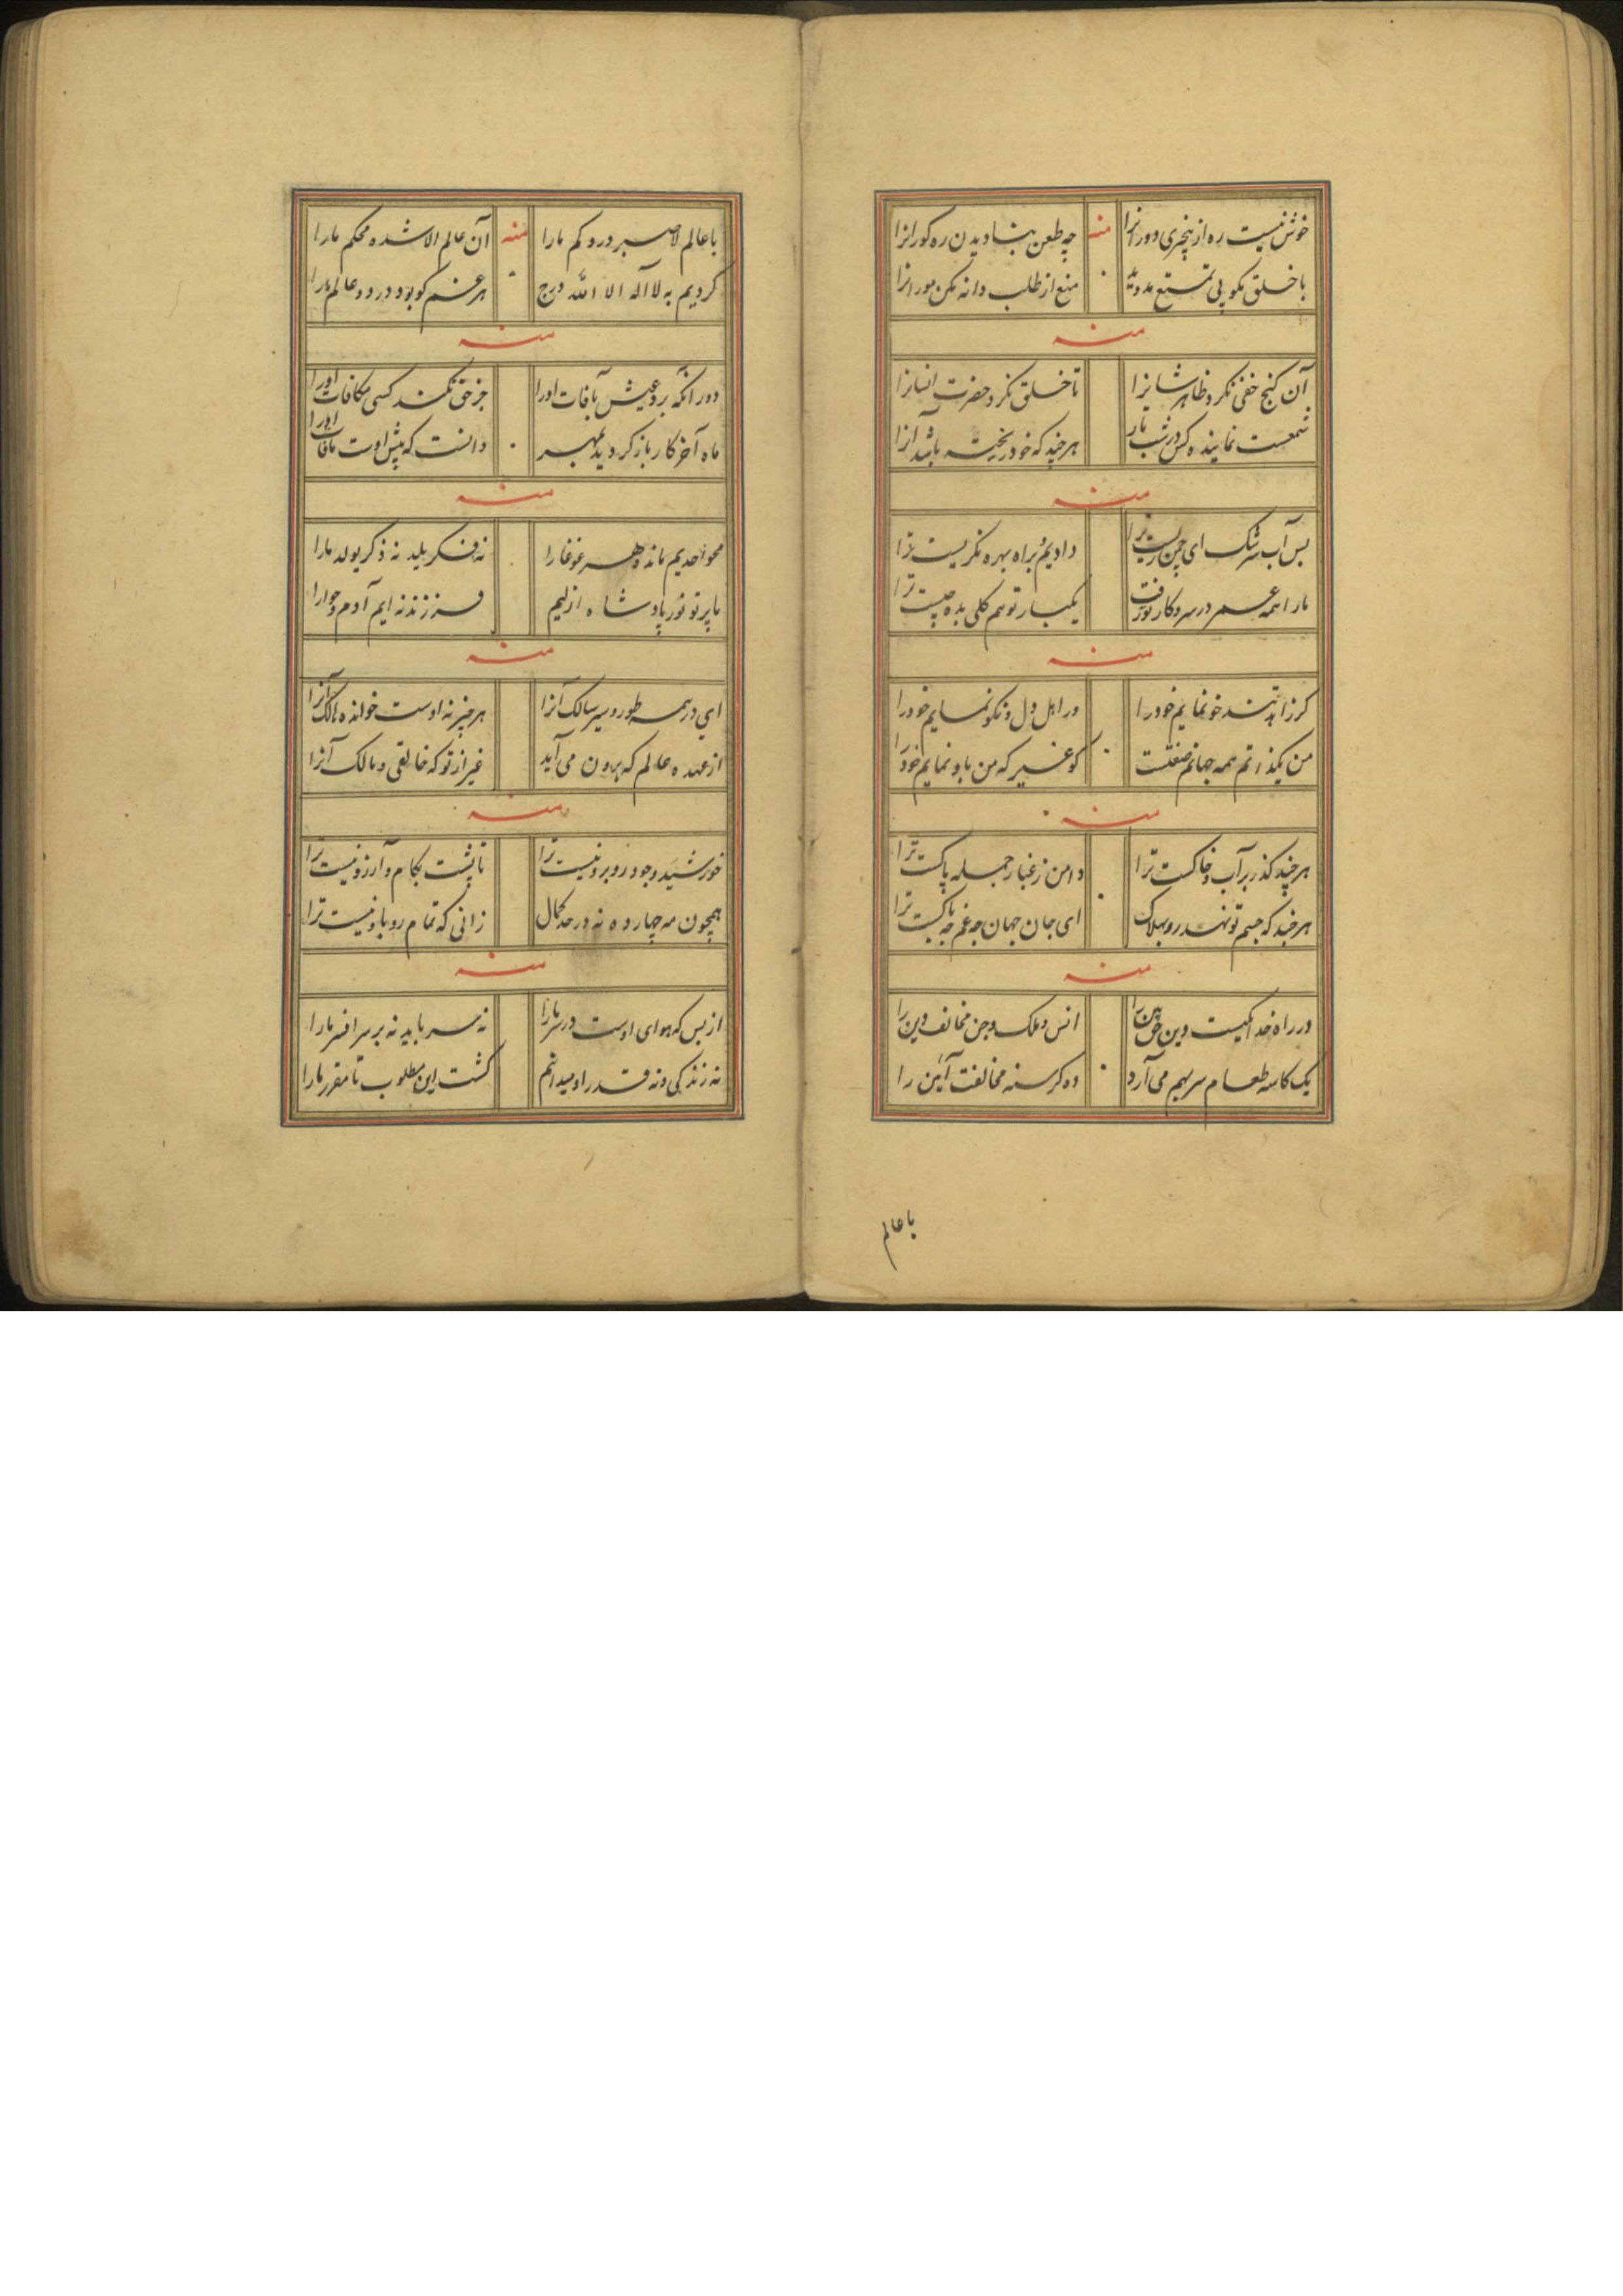 خوش نیست ره از بیخبری دورانرا منه چه طعن بنادیدن ره کورانرا
با خلق مکو پی تمتع مدوید منع از طلب دانه مکن مورانرا
منه
آن کنج خفی نکرد ظاهر شانرا تا خلق نکرد حضرت انسانرا
شمعست نماینده کس در شب تار هر چند که خود ریخته باشد آنرا
منه
بس آب سرشک ای چمن زیست ترا دادیم براه بهره نگریست ترا
ما را همه عمر در سر و کار تو رفت یکبار تو هم کلی بده چیست ترا
منه
کر زاهد تند خو نمایم خود را ور اهل دل و نکو نمایم خود را
من یکذاتم همه جهانم صفتست کو غیر که من باو نمایم خود را
منه
هر چند کذر بر آب و خاکست ترا دامن ز غبار جمله پاکست ترا
هر چند که جسم تو نهد رو بهلاک ای جان جهان چه غم چه باکست ترا
منه
در راه خدا یکیست دین حق بین را انس و ملک و جن مخالف دین را
یک کاسه طعام سر بهم می آرد ده کرسنه مخالفت آئین را
با عالم
با عالم لا صبر درو کم ما را منه آن عالم الا شده محکم ما را
کردیم به لا آله الا الله درج هر غم که بود در دو عالم ما را
منه
دورانکه برد عیش بآفات اورا جز حق نکند کسی مکافات اورا
ماه آخر کار باز کردید بمهر دانست که پیش اوست مافات اورا
منه
محو احدیم مانده هر غوغا را نه فکر یلد نه ذکر یولد ما را
ما پرتو نور پادشاه ازلیم فرزند نه ایم آدم و حوا را
منه
ای در همه طور و سیر سالک آنرا هر چیز نه اوست خوانده هالک آنرا
از عهده عالم که برون می آید غیر از تو که خالقی و مالک آنرا
منه
خورشید وجود روبرو نیست ترا تا پشت بکام و آرزو نیست ترا
همچون مه چهارده نه در حد کمال زانی که تمام رو باو نیست ترا
منه
از بس که هوای اوست در سر ما را نه سر باید نه بر سر افسر ما را
نه زندکی و نه قدر او میدانم کشت این مطلوب تا مقرر ما را